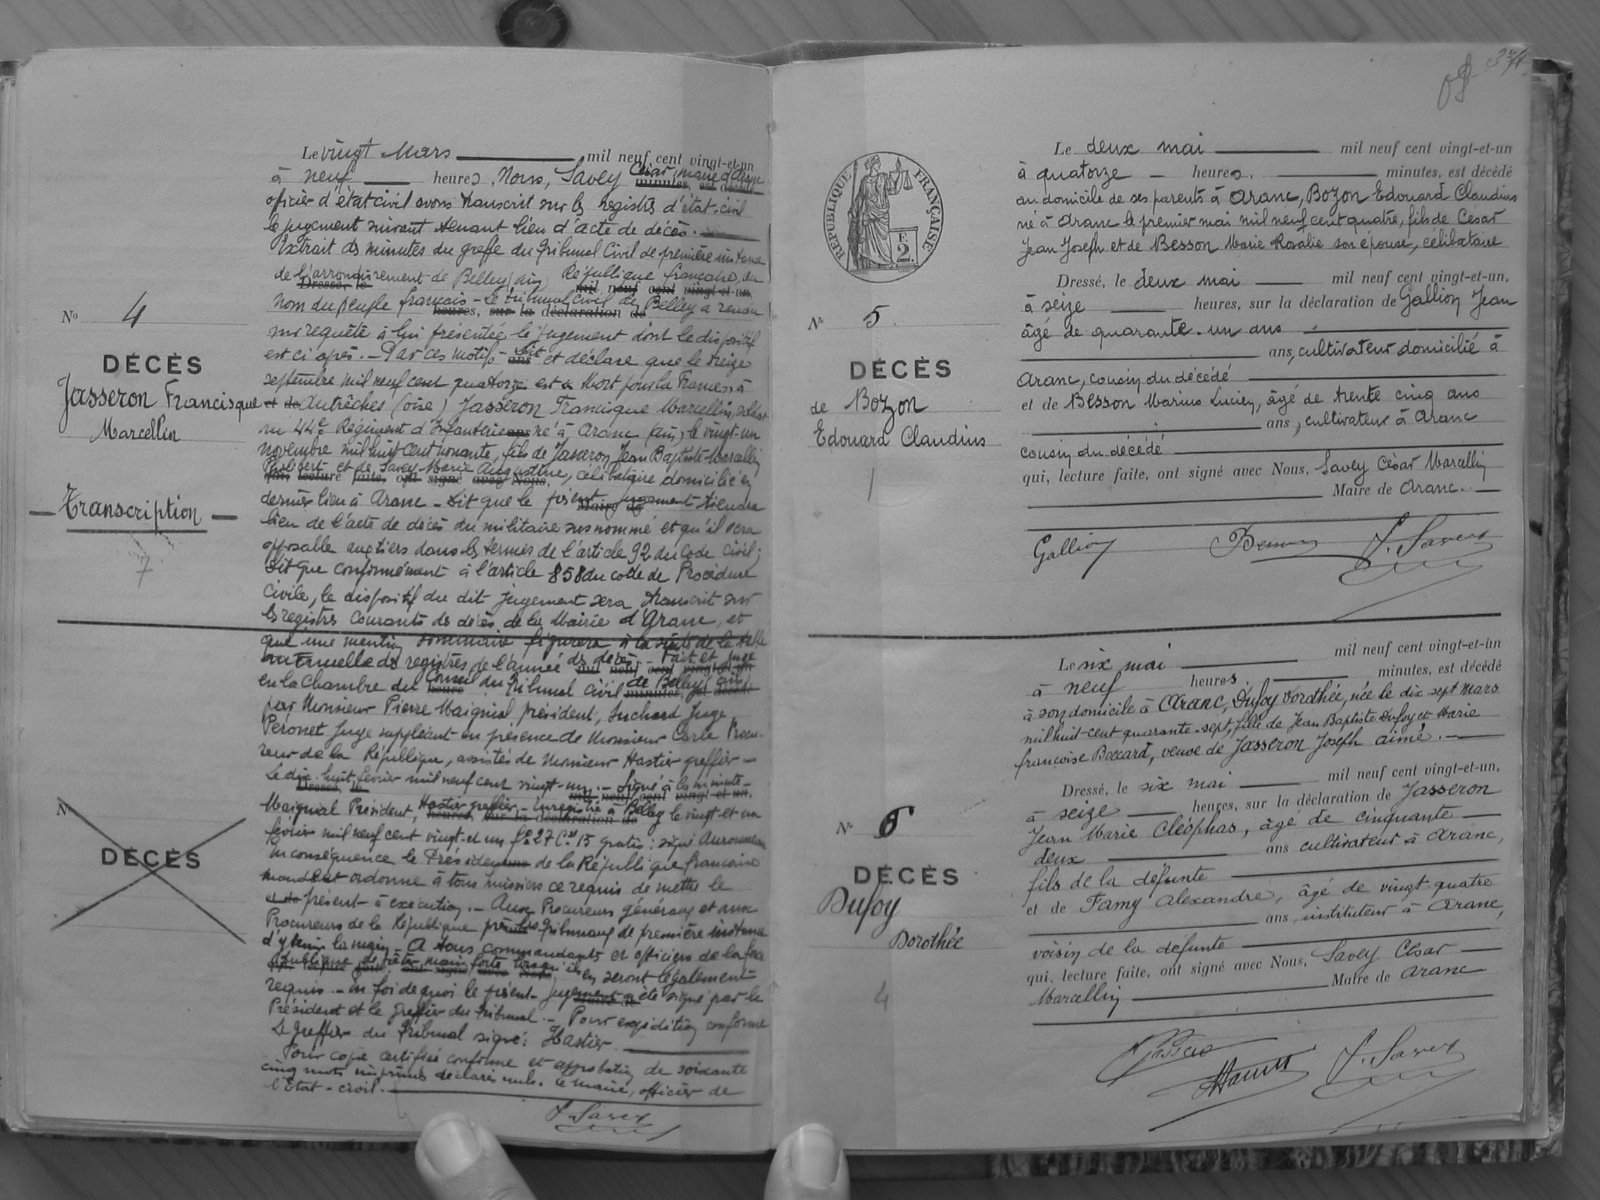 Le vingt Mars mil neuf cent vingt-et-un
à neuf heures, Nous, Savey César, maire d'Aranc
officier d'état civil avons transcrit sur les registres d'état-civil
le jugement suivant tenant lieu d'acte de décès.
Extrait des minutes du greffe du tribunal Civil de première instance
de l'arrondissement de Belley (Ain) République française, au
nom du peuple français - Le tribunal civil de Belley a rendu
sur requête à lui présentée le jugement dont le dispositif
est ci après. - Par ces motifs - Dit et déclare que le treize
septembre mil neuf cent quatorze est Mort pour la France à
Autrêches (oise) Jasseron Francisque Marcellin, soldat
au 44e Régiment d'Infanterie né à Aranc (Ain) le vingt-un
novembre mil huit cent nonante, fils de Jasseron Jean Baptiste Marcellin
Philibert et de Savey Marie Augustine, célibataire domicilié en
dernier lieu à Aranc - Dit que le présent jugement tiendra
lieu de l'acte de décès du militaire susnommé et qu'il sera
opposable aux tiers dans les termes de l'article 92 du Code Civil;
Dit que conformément à l'article 858 du code de Procédure
Civile, le dispositif du dit jugement sera transcrit sur
les registres courants de décès de la Mairie d'Aranc, et
que une mention sommaire figurera à la suite de la table
annuelle des registres de l'année du décès - Fait et jugé
en la Chambre du Conseil du tribunal civil de Belley (Ain)
par Monsieur Pierre Maignial, président, Suchard Juge
Peronet Juge suppléant en présence de Monsieur Carle Procu-
reur de la République, assistés de Monsieur Hastier greffier -
Le dix-huit février mil neuf cent vingt-un. - Signé à la minute -
Maignial Président, Hastier greffier - Enregistré à Belley le vingt et un
février mil neuf cent vingt-et un f° 27 C. 15 gratis: signé
En conséquence le Président de la République française
mande et ordonne à tous huissiers ce requis de mettre le
présent à exécution. - Aux Procureurs généraux et aux
Procureurs de la République près les tribunaux de première instance
d'y tenir la main - A tous commandants et officiers de la force
publique de prêter main forte lorsqu'ils en seront légalement
requis. - en foi de quoi le présent jugement a été signé par le
Président et le greffier du tribunal. - Pour expédition conforme
Le greffier du tribunal signé: Hastier.
Pour copie certifiée conforme et approbation de soixante
cinq mots imprimés déclarés nuls. Le maire, officier de
l'État-civil.
J. Savey
No 4
DÉCÈS
Jasseron Francisque
Marcellin
Transcription
7
N
DÉCÈS
374
Le deux mai mil neuf cent vingt-et-un
à quatorze heures, minutes, est décédé
au domicile de ses parents à Aranc, Bozon Edouard Claudius
né à Aranc le premier mai mil neuf cent quatre, fils de César
Jean Joseph et de Besson Marie Rosalie son épouse, célibataire
Dressé, le deux mai mil neuf cent vingt-et-un,
à seize heures, sur la déclaration de Gallion Jean
âgé de quarante-un ans
ans, cultivateur domicilié à
Aranc, cousin du décédé
et de Besson Marius Lucien, âgé de trente cinq ans
ans, cultivateur à Aranc
cousin du décédé
qui, lecture faite, ont signé avec Nous, Savey César Marcellin
Maire de Aranc.
Gallion Besson J. Savey
RÉPUBLIQUE FRANÇAISE
F.
2.
No 5
DÉCÈS
de Bozon
Edouard Claudius
1
Le six mai mil neuf cent vingt-et-un
à neuf heures, minutes, est décédé
à son domicile à Aranc, Dufoy Dorothée, née le dix sept Mars
mil huit-cent quarante-sept, fille de Jean Baptiste Dufoy et Marie
françoise Beccard, veuve de Jasseron Joseph aimé.
Dressé, le six mai mil neuf cent vingt-et-un,
à seize heures, sur la déclaration de Jasseron
Jean Marie Cléophas, âgé de cinquante
deux ans cultivateur à Aranc,
fils de la défunte
et de Famy Alexandre, âgé de vingt quatre
ans, instituteur à Aranc,
voisin de la défunte
qui, lecture faite, ont signé avec Nous, Savey César
Marcellin Maire de Aranc
J. Savey
No 6
DÉCÈS
Dufoy
Dorothée
4